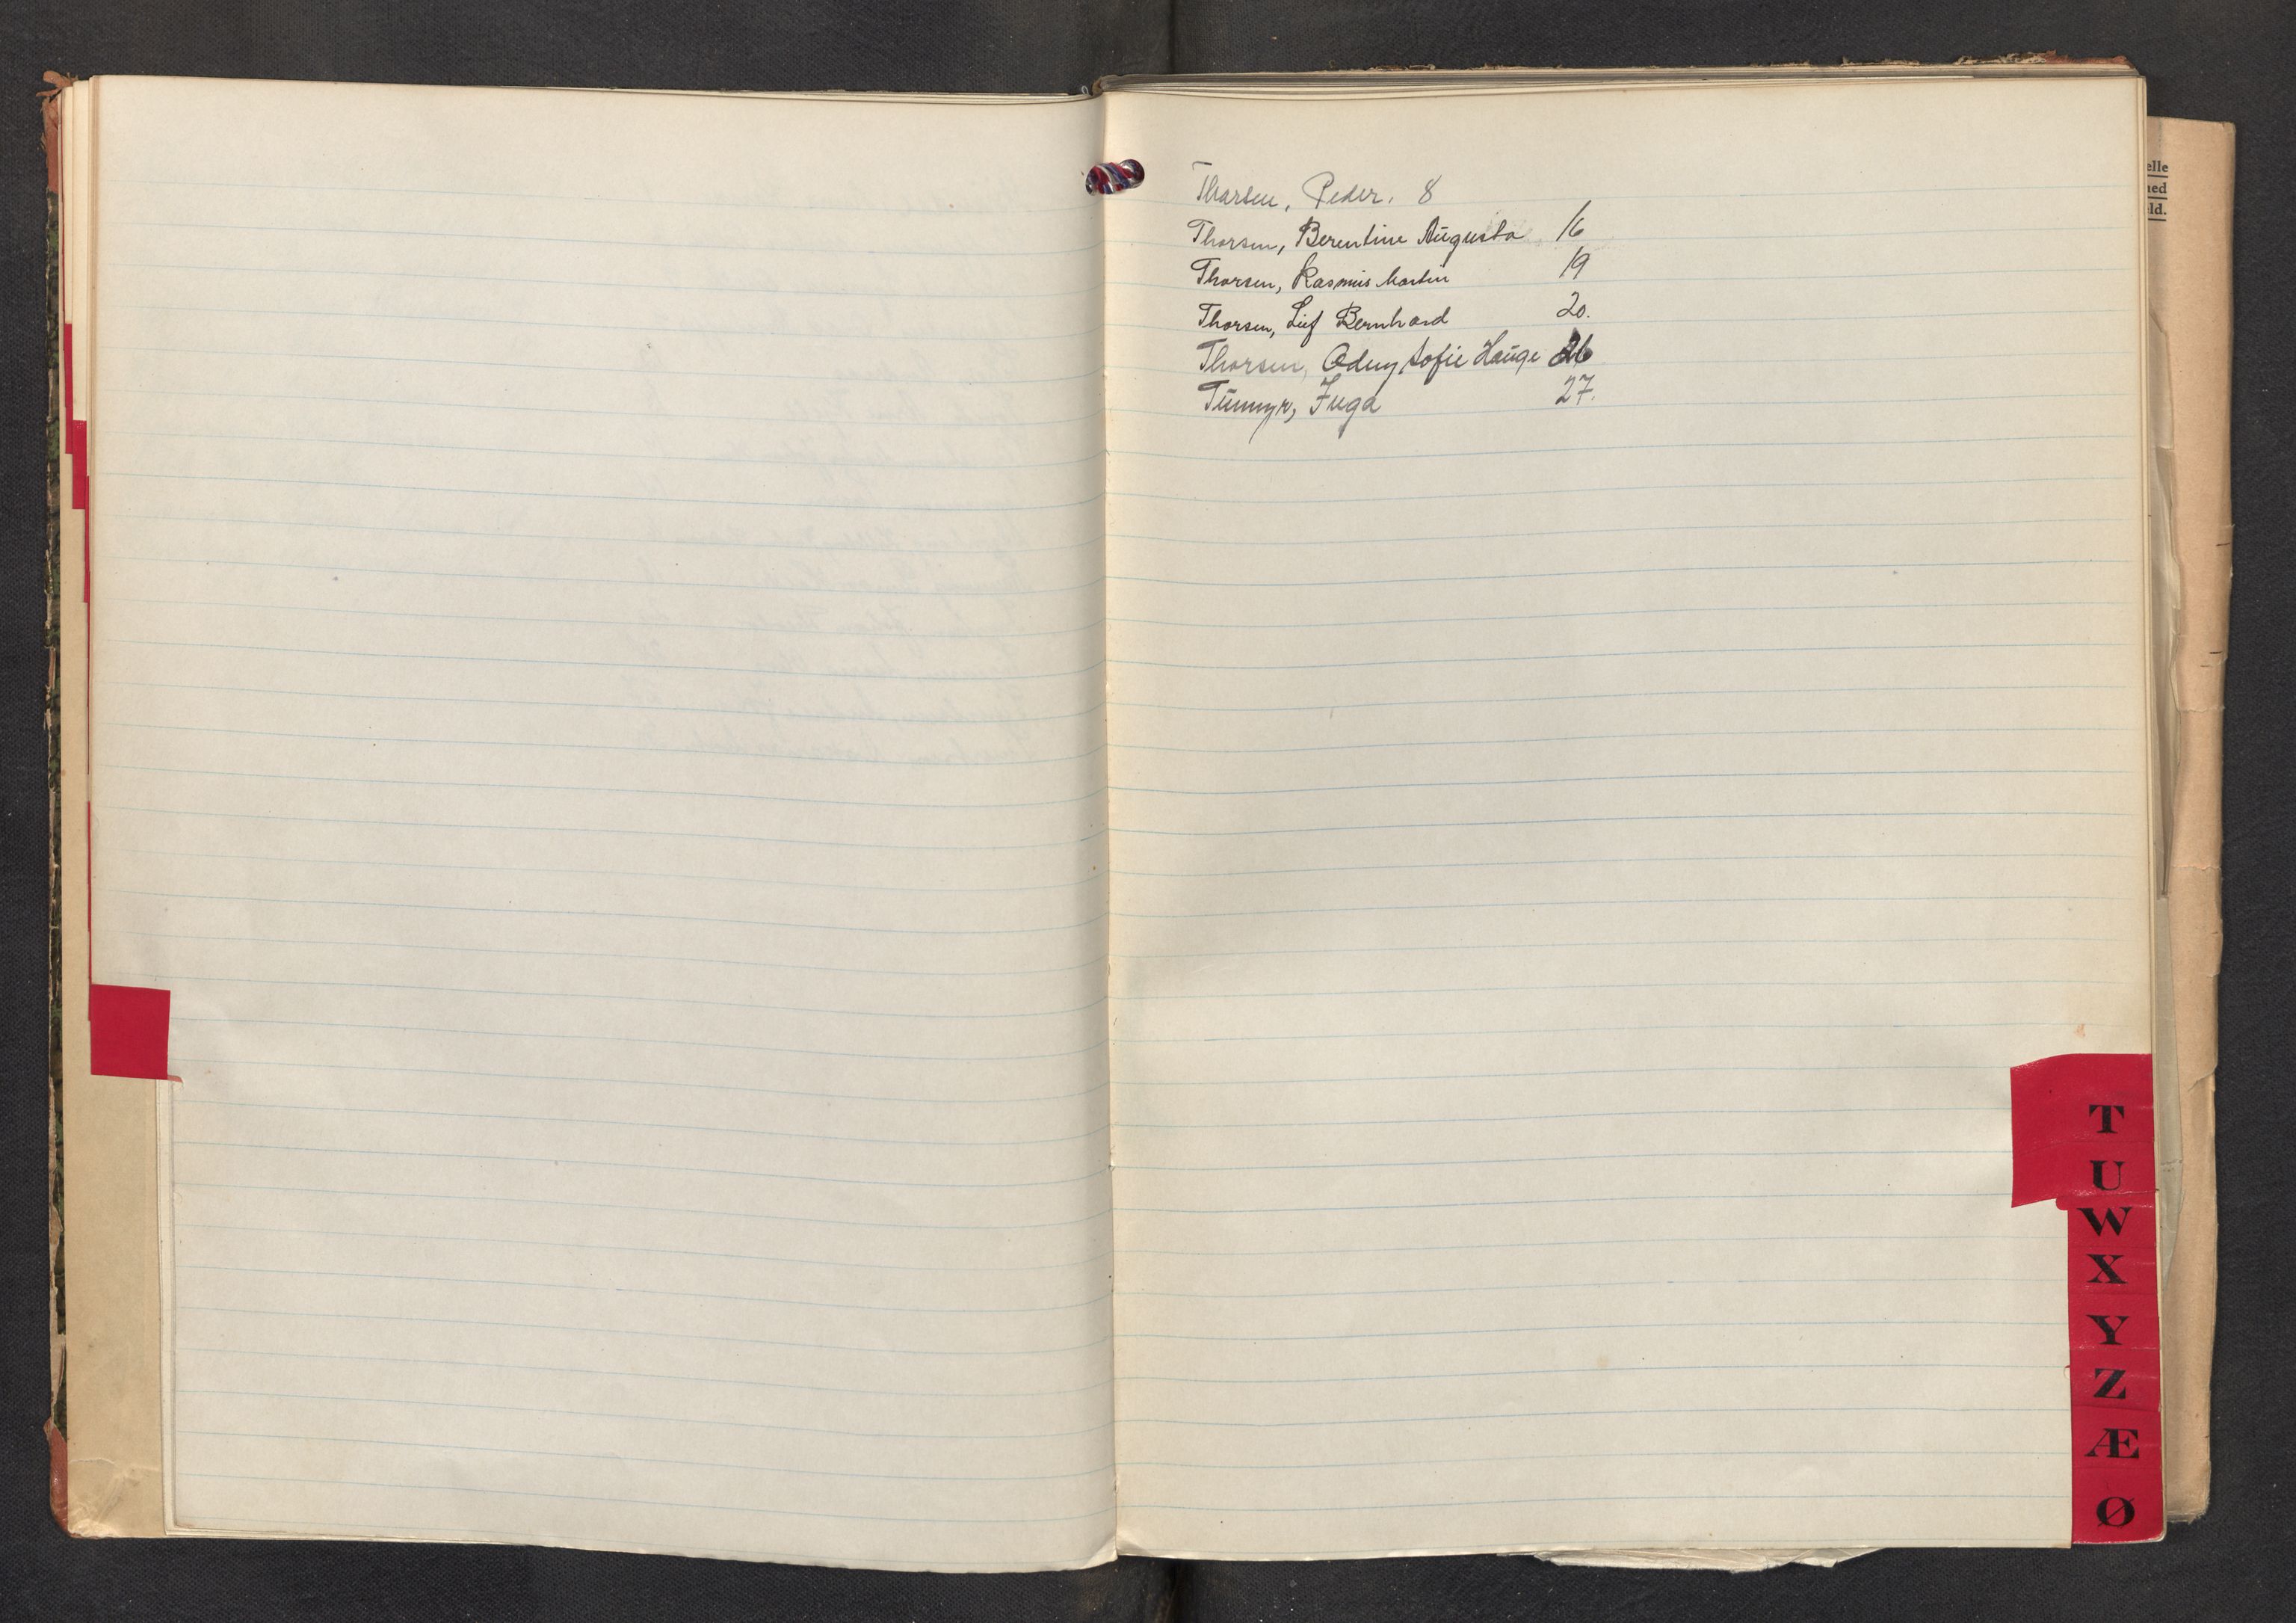 Thorsen, Peder. 8
Thorsen, Berentine Augusta 16
Thorsen, Rasmus Martin 19
Thorsen, Leif Bernhard 20.
Thorsen, Odny Sofie Hauge 26
Tümyr, Inga 27.
elle
ned
ld.
T
U
W
X
Y
Z
Æ
Ø